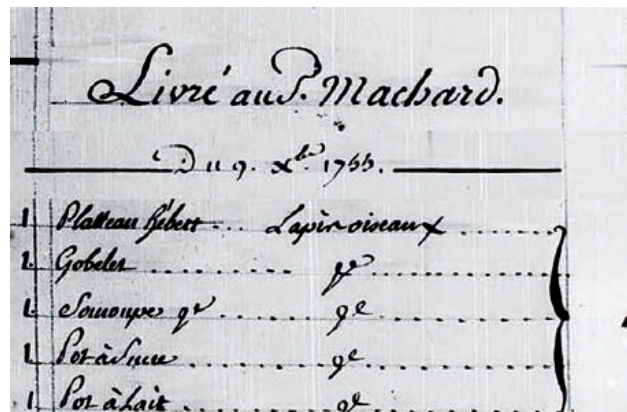 Livré au S. Machard.
Du 9. Xbre 1755.
1. Platteau hébert... Lapis oiseaux
1. Gobelet qe
1. Soucoupe qe qe
1. Pot à Sucre qe
1. Pot à Lait qe